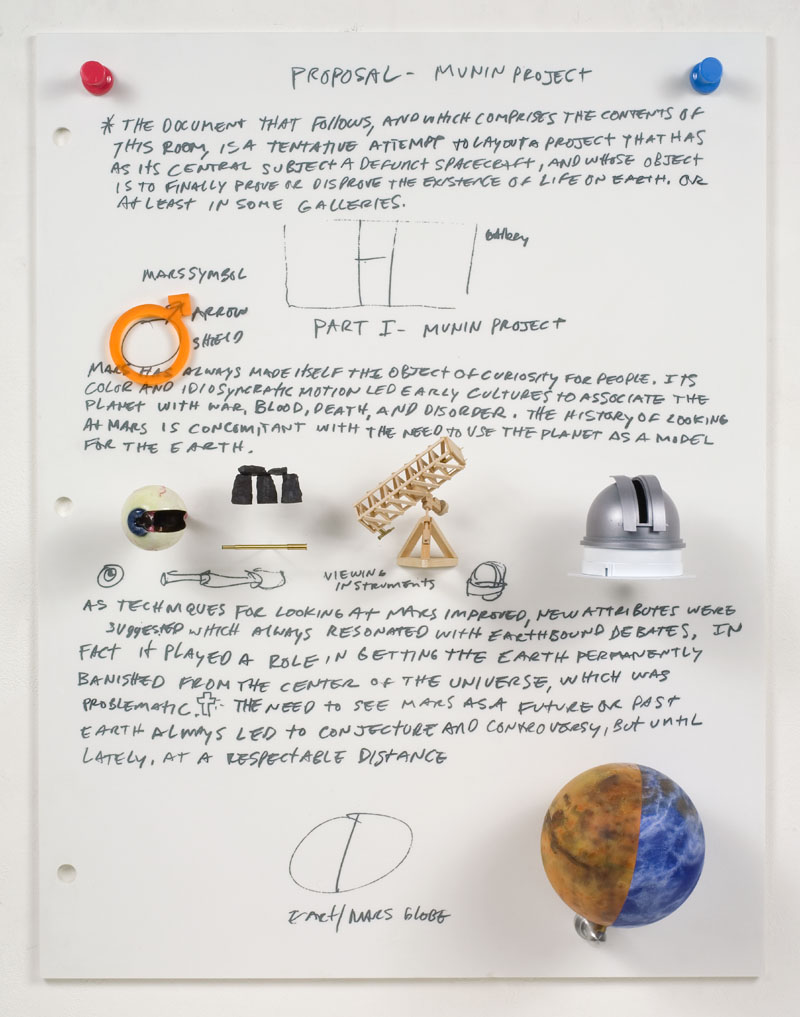 PROPOSAL - MUNIN PROJECT
* THE DOCUMENT THAT FOLLOWS, AND WHICH COMPRISES THE CONTENTS OF
THIS ROOM, IS A TENTATIVE ATTEMPT TO LAYOUT A PROJECT THAT HAS
AS ITS CENTRAL SUBJECT A DEFUNCT SPACECRAFT, AND WHOSE OBJECT
IS TO FINALLY PROVE OR DISPROVE THE EXISTENCE OF LIFE ON EARTH. OR
AT LEAST IN SOME GALLERIES.
Gallery
MARS SYMBOL
ARROW
SHIELD
PART I - MUNIN PROJECT
MARS HAS ALWAYS MADE ITSELF THE OBJECT OF CURIOSITY FOR PEOPLE. ITS
COLOR AND IDIOSYNCRATIC MOTION LED EARLY CULTURES TO ASSOCIATE THE
PLANET WITH WAR, BLOOD, DEATH, AND DISORDER. THE HISTORY OF LOOKING
AT MARS IS CONCOMITANT WITH THE NEED TO USE THE PLANET AS A MODEL
FOR THE EARTH.
VIEWING
INSTRUMENTS
AS TECHNIQUES FOR LOOKING AT MARS IMPROVED, NEW ATTRIBUTES WERE
SUGGESTED WHICH ALWAYS RESONATED WITH EARTHBOUND DEBATES. IN
FACT IT PLAYED A ROLE IN GETTING THE EARTH PERMANENTLY
BANISHED FROM THE CENTER OF THE UNIVERSE, WHICH WAS
PROBLEMATIC. THE NEED TO SEE MARS AS A FUTURE OR PAST
EARTH ALWAYS LED TO CONJECTURE AND CONTROVERSY, BUT UNTIL
LATELY, AT A RESPECTABLE DISTANCE
EART/MARS GLOBE